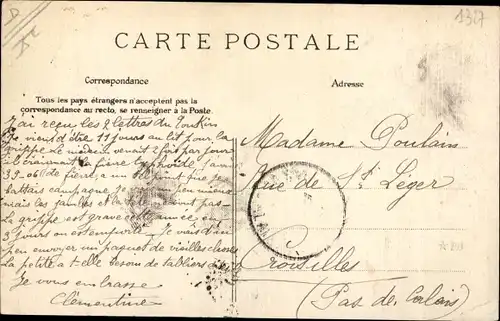 1317
CARTE POSTALE
Correspondance
Adresse
Tous les pays étrangers n'acceptent pas la
correspondance au recto, se renseigner à la Poste.
J'ai reçu les 2 lettres du Tonkin
Je viens d'être 11 jours au lit pour la
grippe Le médecin venait 2 fois par jour
la fièvre typhoïde j'avais
39-06 de fièvre a un point que je
battais campagne je
mais les jambes et la tête pas
La grippe est grave cette année en
3 jours on est emporté Je vais t'en
peu envoyer un paquet de vieilles choses
La petite a t-elle besoin de tabliers
Je vous embrasse
Clémentine
Madame Poulain
Rue de St Léger
Croisilles
(Pas de Calais)